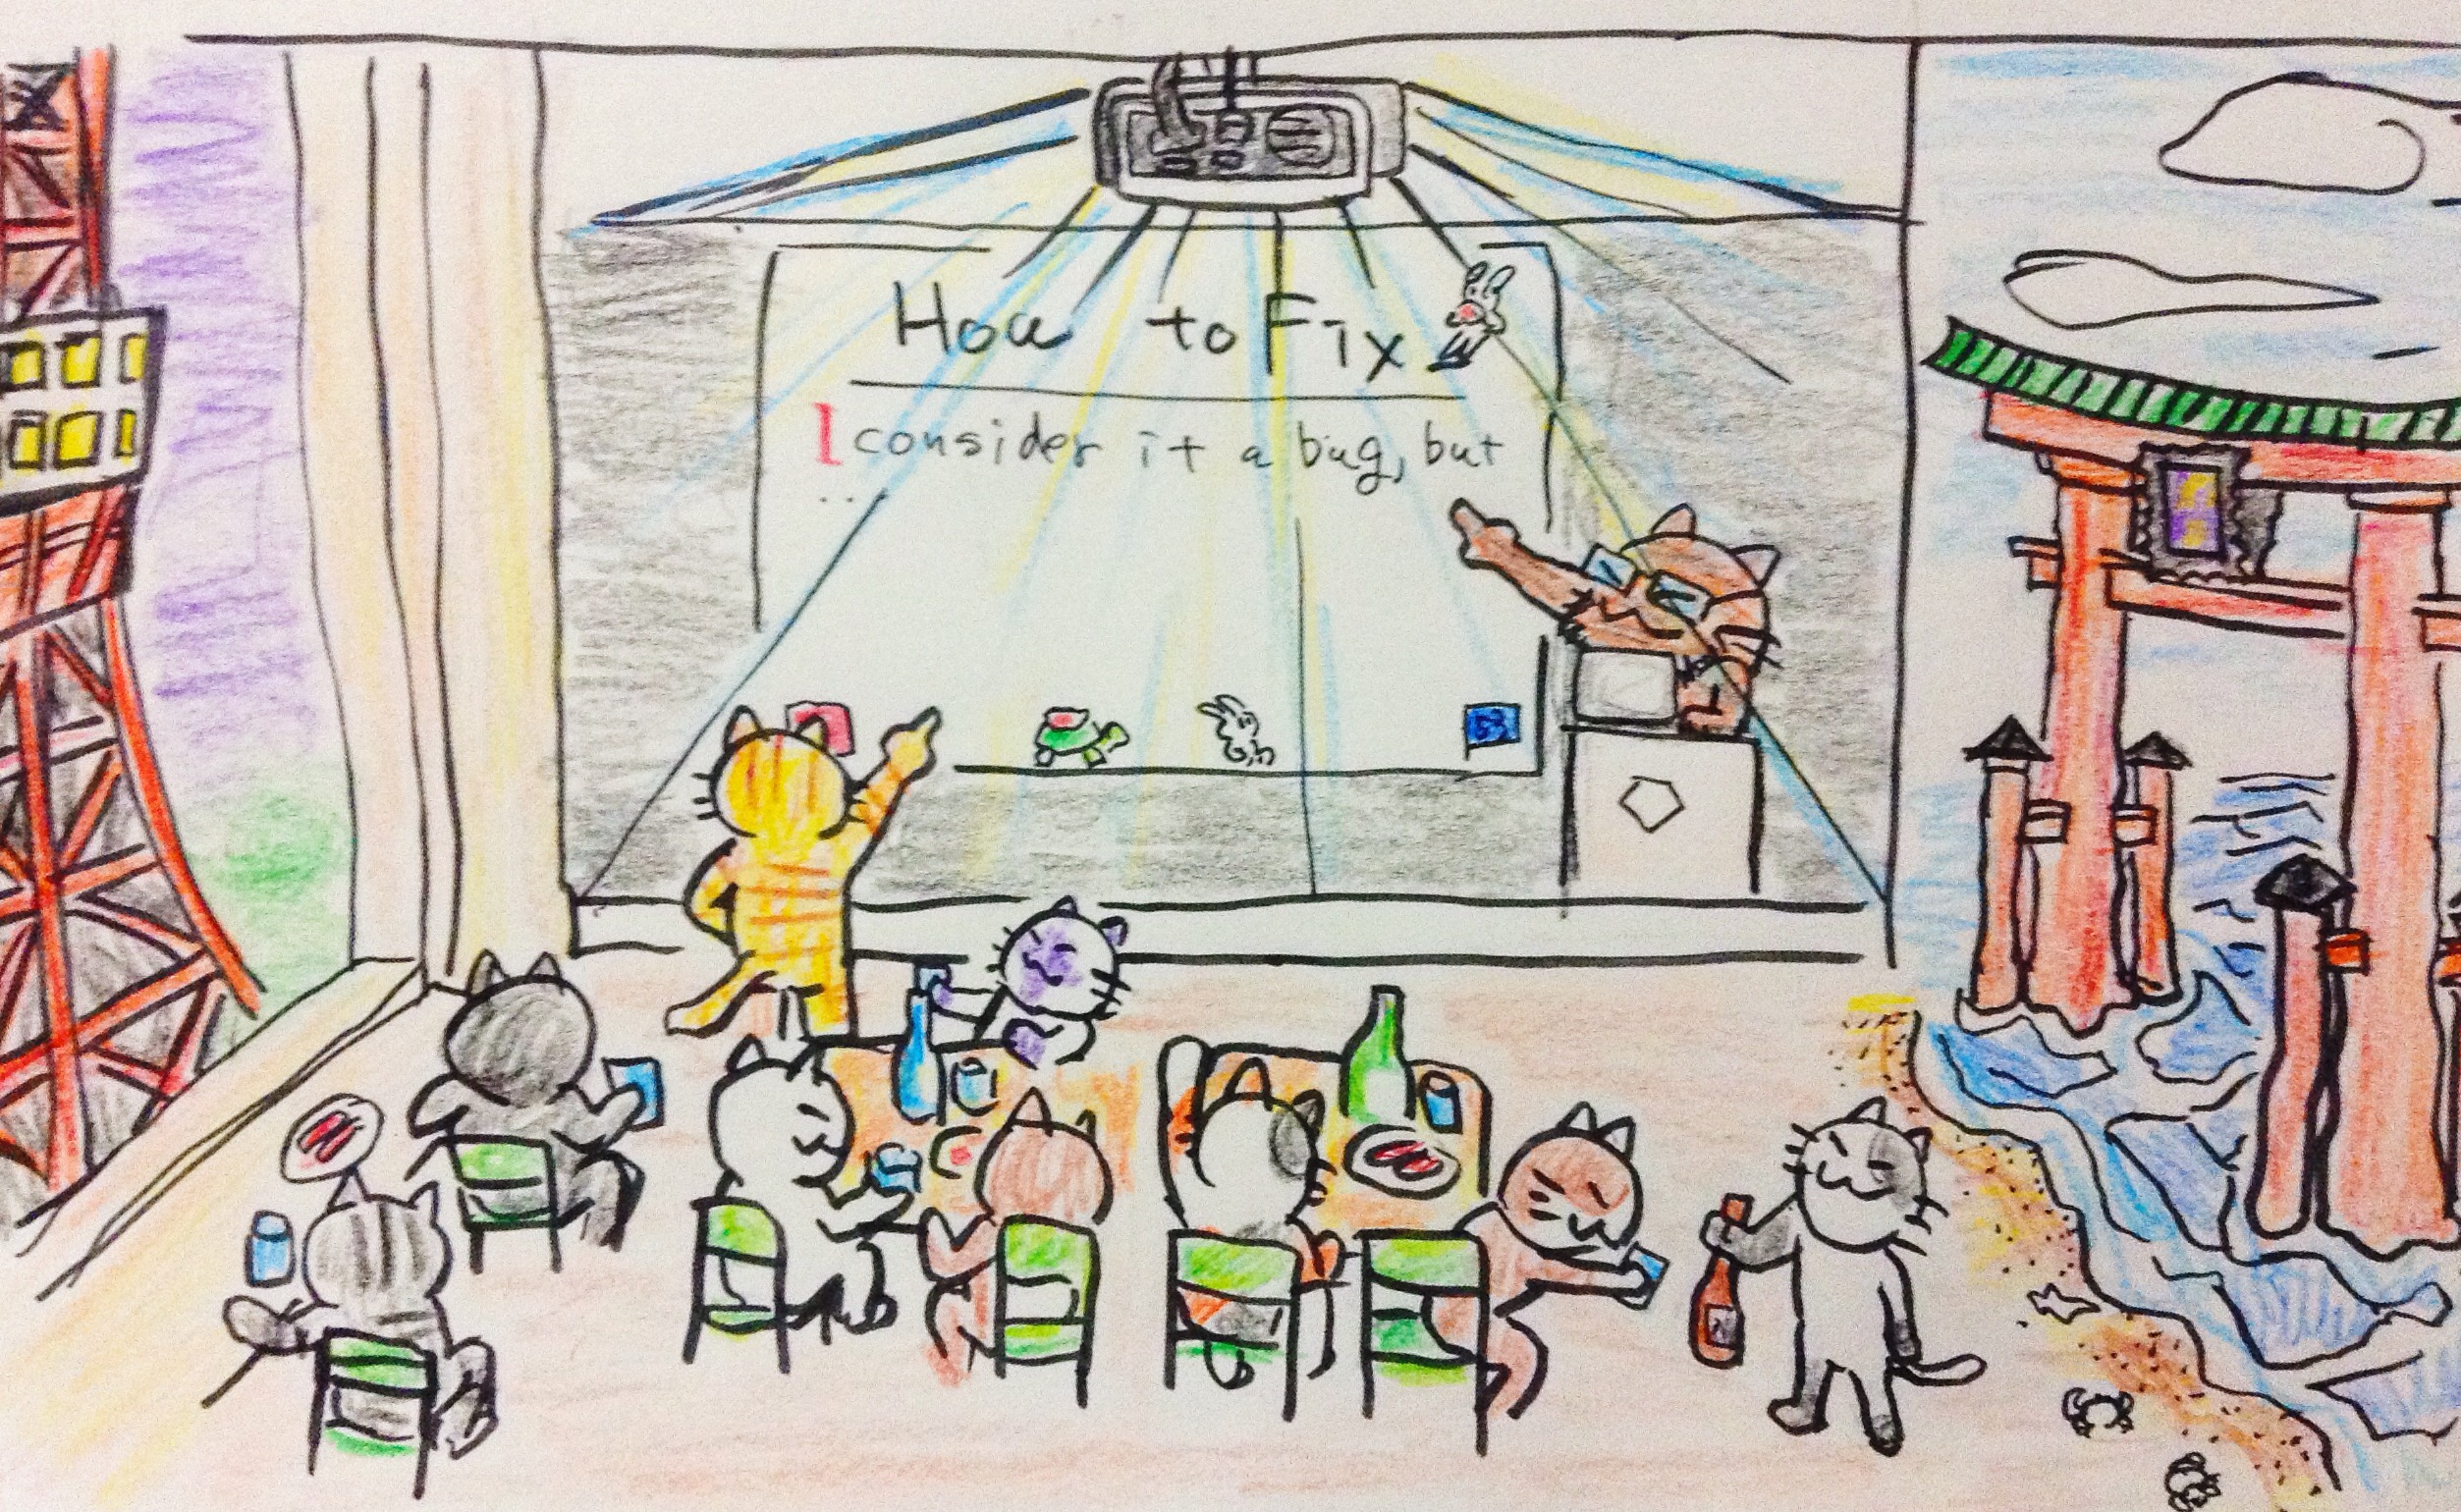 How to Fix
I consider it a bug, but
..